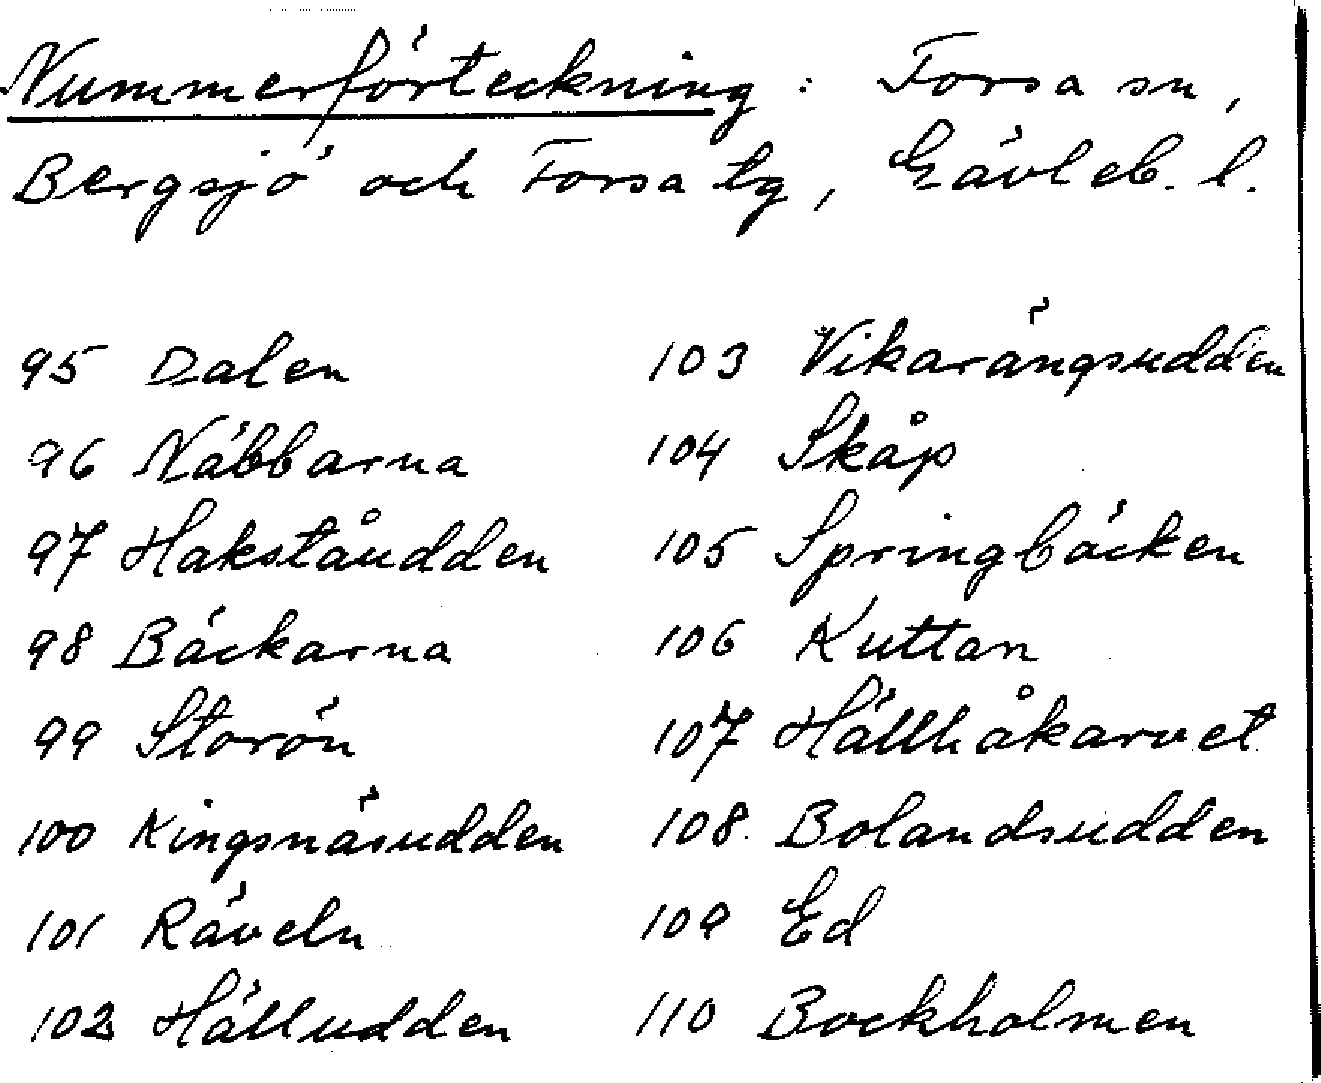 Nummerförteckning: Forsa sn,
Bergsjö och Forsa tg, Gävleb. l.
95 Dalen
96 Näbbarna
97 Hakståudden
98 Bäckarna
99 Storön
100 Kingsnäsudden
101 Räveln
102 Hälludden
103 Vikarängsudden
104 Skåp
105 Springbäcken
106 Kuttan
107 Hällhåkarvet
108 Bolandsudden
109 Ed
110 Bockholmen